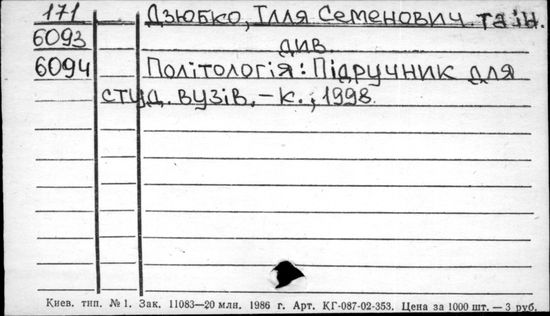 171 Дзюбко, Ілля Семенович та ін.
6093 див
6094 Політологія: Підручник для
студ. вузів. – К., 1998.
Киев. тип. № 1. Зак. 11083—20 млн. 1986 г. Арт. КГ-087-02-353. Цена за 1000 шт. — 3 руб.